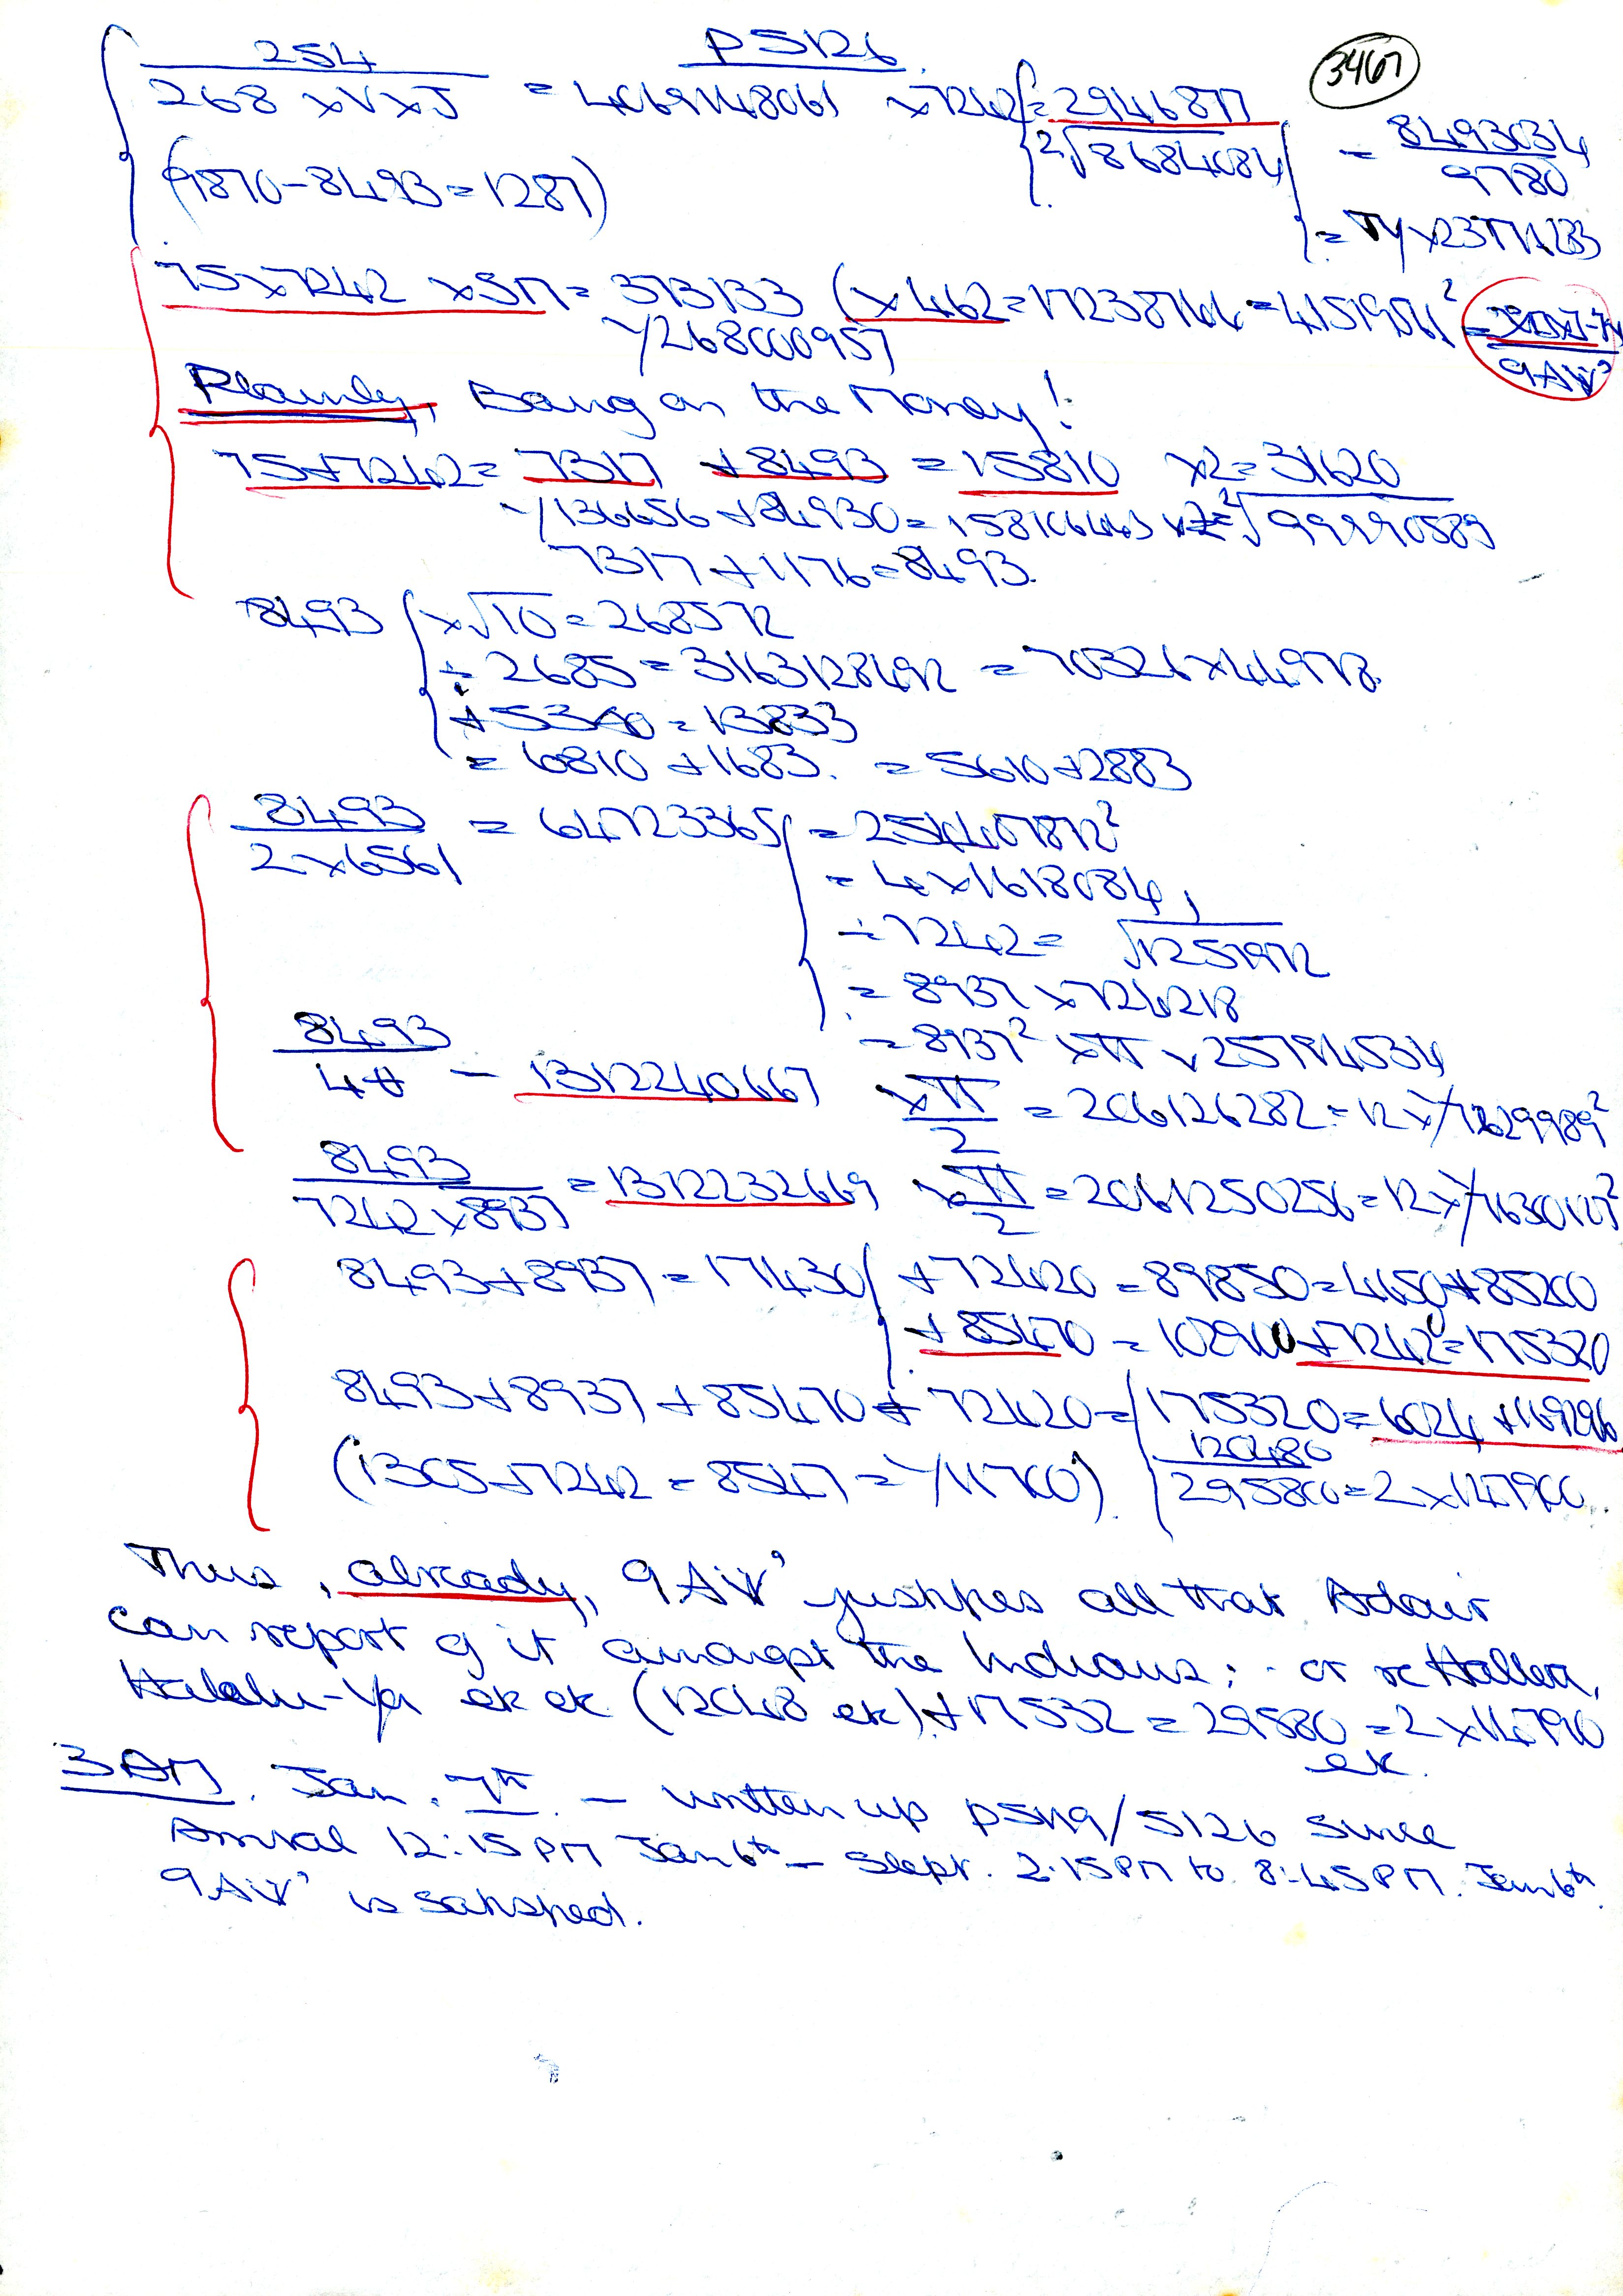 P5126
3467
254
268 × V × J = 4069148061 × 7242 = 2946877
2√8684084 = 8493034
9780
(9870 - 8493 = 1287)
75 × 7242 × 5π = 373133 (× 462 = 17238766 = 41519561²
9AiV'
Y268000957
Plainly, Bang on the Money!
75 + 7242 = 7317 + 8493 = 15810 × 2 = 31620
7317 + 1176 = 8493.
8493 × √10 = 268572
÷ 2685 = 3163128492 = 70326 × 44978
+ 5340 = 13833
= 6810 + 1683. = 5610 + 2883
8493
2 × 6561 = 64723365 = 254407872²
= 4 × 1618084
÷ 7242 = √1251972
= 8937 × 724218
= 8937² × π × 257914534
8493
1312240667 × π
2 = 206126282 = 12 ×
8493
7242 × 8937 = 1312232669 × π
2 = 2061250256 = 12 ×
8493 + 8937 = 17430 + 72420 = 89850 = 4650 + 85200
+ 85470 = 102900 + 72420 = 175320
8493 + 8937 + 85470 + 72420 = 175320 = 6024 + 169296
120480
295800 = 2 × 147900
(1305 + 7242 = 8547 = Y11700)
Thus, already, 9AiV' justifies all that Adair
can report of it amongst the Indians; - or re Haller,
Halelu-Ya ek ek (12048 ek) + 17532 = 29580 = 2 × 14790
ek.
3 AM. Jan. 7th. - written up p5119/5126 since
Arrival 12:15 PM Jan 6th - Slept. 2:15 PM to 8:45 PM. Jan 6th.
9AiV' is satisfied.